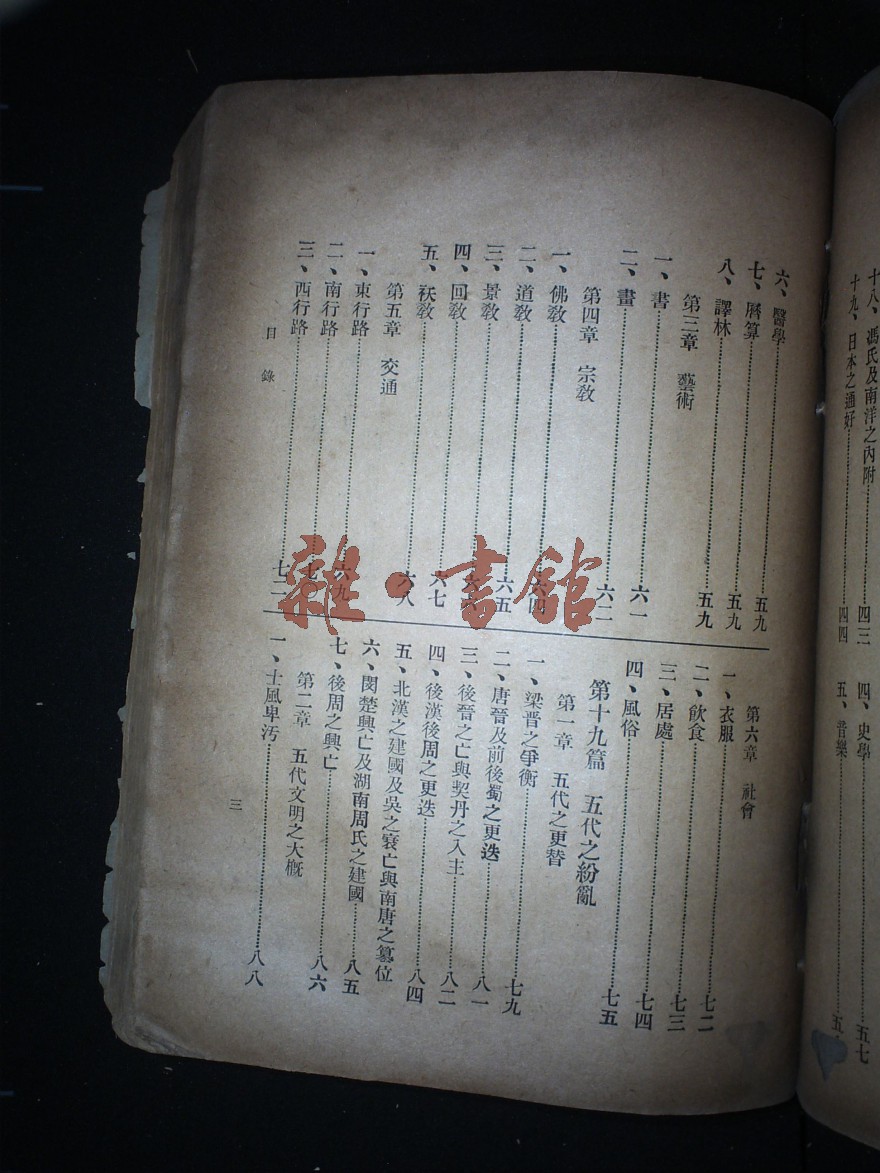 十八、馮氏及南洋之內附……四三
十九、日本之通好……四四
四、史學……五七
五、音樂……五
六、醫學……五九
七、曆算……五九
八、譯林……五九
第三章 藝術
一、書……六一
二、畫……六二
第四章 宗教
一、佛教……六四
二、道教……六五
三、景教……六
四、回教……六七
五、祆教……六八
第五章 交通
一、東行路……六九
二、南行路……七〇
三、西行路……七二
第六章 社會
一、衣服……七二
二、飲食……七三
三、居處……七四
四、風俗……七五
第十九篇 五代之紛亂
第一章 五代之更替
一、梁晉之爭衡……七九
二、唐晉及前後蜀之更迭……八一
三、後晉之亡與契丹之入主……八二
四、後漢後周之更迭……八四
五、北漢之建國及吳之衰亡與南唐之篡位
六、閔楚興亡及湖南周氏之建國……八五
七、後周之興亡……八六
第二章 五代文明之大概
一、士風卑汚……八八
目錄
三
雜·書館